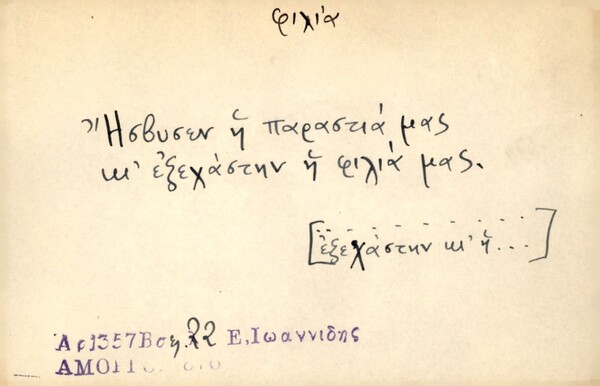 φιλιά
Ἤσβυσεν ἡ παραστιά μας
κι' ἐξεχάστην ἡ φιλιά μας.
[ἐξεχάστην κι' ἡ...]
Ἀρ1357Βσελ.22 Ε.Ιωαννίδης